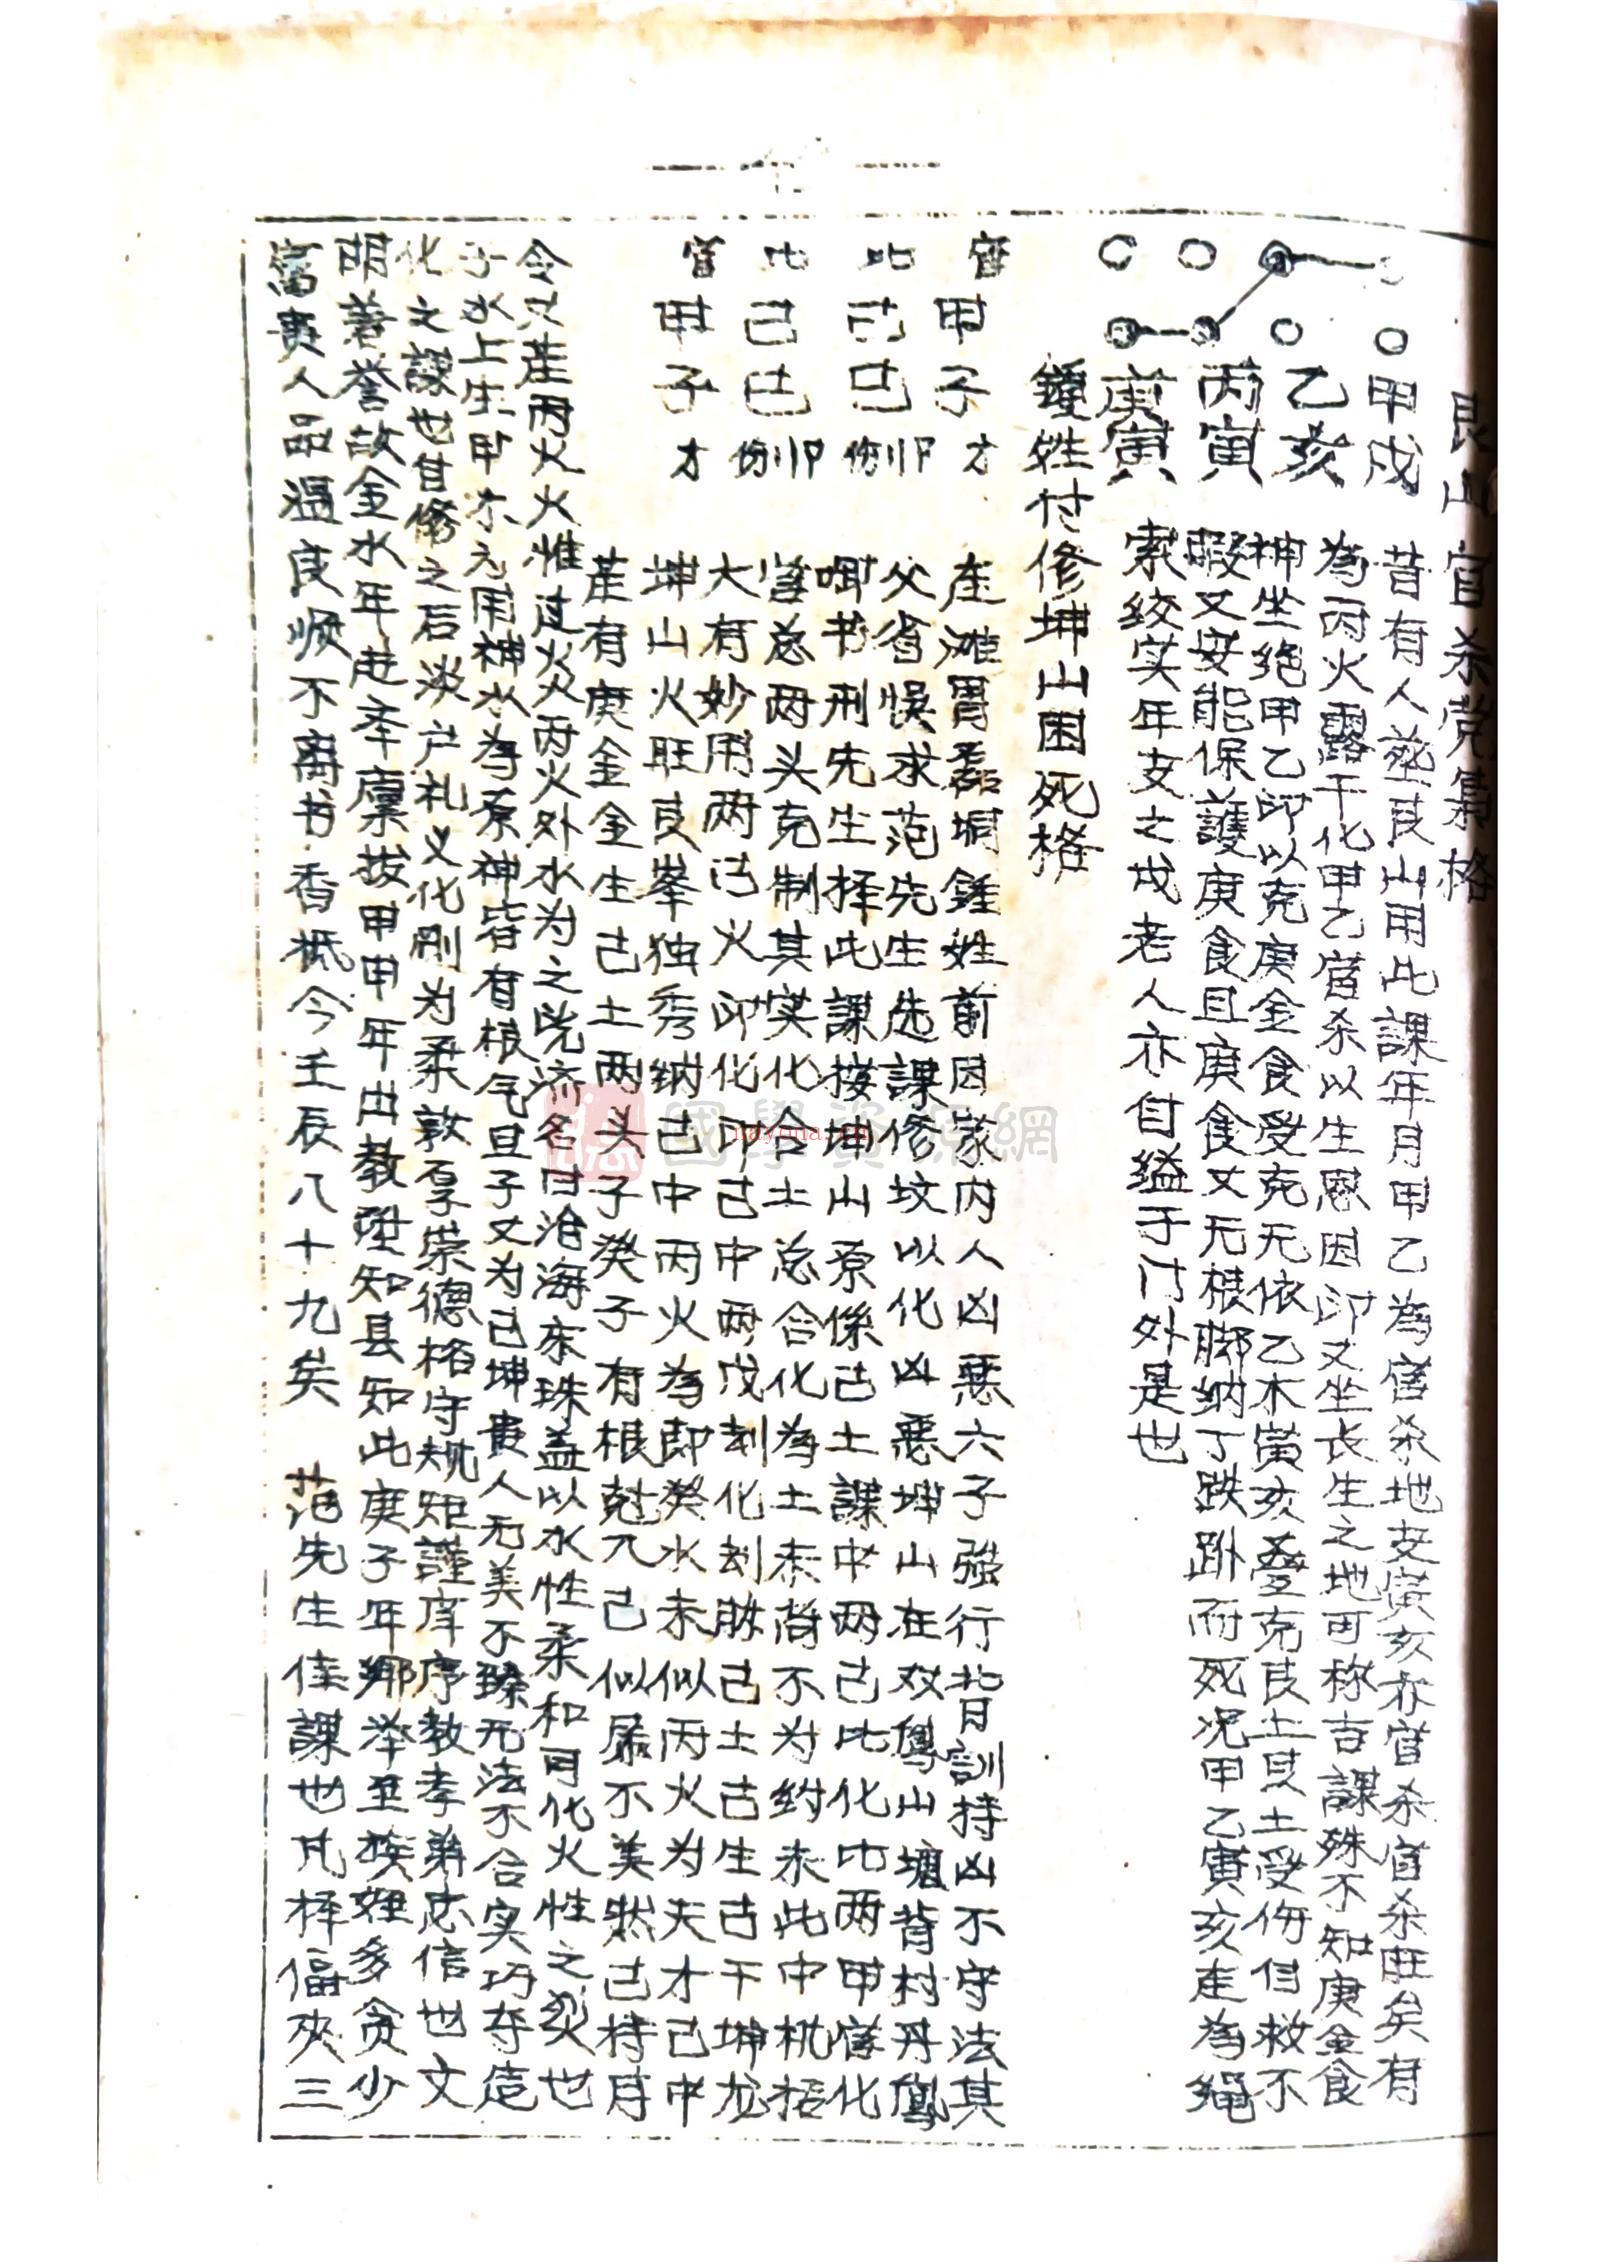 艮山官杀党集格
甲戌 昔有人葬艮山用此課年月甲乙為官杀地支寅亥亦官杀官杀旺矣有
乙亥 為丙火露干化甲乙官杀以生恩因印又坐长生之地可称吉課殊不知庚金食
丙寅 神坐绝甲乙印以克庚金食受克无依乙木寅亥叠克艮土艮土受伤自救不
庚寅 暇又安能保護庚食且庚食又无根脚纳丁跌卧而死况甲乙寅亥产為绳
索绞实年支之戌老人亦自缢于门外是也
鍾姓付修坤山困死格
官 甲子 才
比 己巳 劫印
比 己巳 劫印
官 甲子 才
产滩胃磊垌鍾姓前因家内人凶惡六子強行昔日訓持凶不守法其
父省悮求范先生选課修坟以化凶惡坤山在双鳳山塘背村丹鳳
啣书刑先生择此課接坤山原係己土課中两己比化比两甲官化
官总两头克制其实化合土总合化為土未尚不为约未此中机括
大有妙用两巳火印化印己中两戊刦化刦脉己土己生己干坤龙
坤山火旺艮峯独秀纳巳中丙火為即癸水未似丙火为夫才己中
产有庚金金生己土两头子癸子有根尅兀己似属不美然己持月
令又产丙火火惟过炎丙火外水为之既济名曰沧海末珠盖以水性柔和可化火性之烈也
子水上生甲木元用神水為原神皆有根气且子又为己坤貴人无美不臻无法不合实巧夺造
化之課也自修之后淡户礼义化刚为柔敦厚崇德格守规矩謹庠序教孝弟忠信也文
明著誉故金水年赴奉廪拔甲甲年出教理知县知此庚子年鄉举至族姪多贪少
富貴人品温良顺不离书香柢今壬辰八十九矣 范先生佳課也凡择偪夾三
國學資源網
nayona.cn